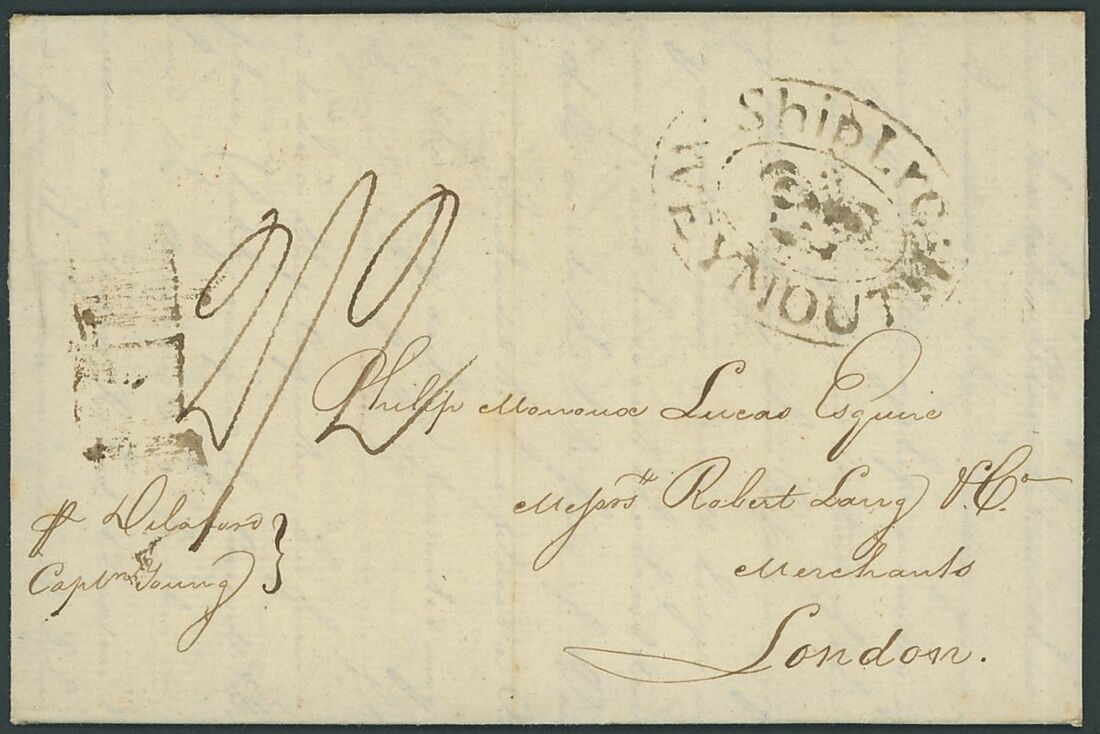 Ship Lre
WEYMOUTH
2/2
Philip Monoux Lucas Esquire
Messrs Robert Lang & Co.
Merchants
London.
p Delaford
Captn Young